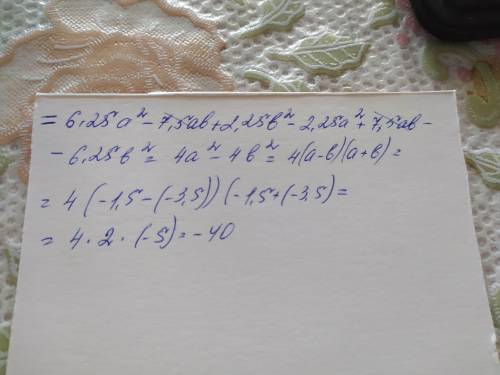 = 6,25a² - 7,5ab + 2,25b² - 2,25a² + 7,5ab -
- 6,25b² = 4a² - 4b² = 4(a-b)(a+b) =
= 4 (-1,5 - (-3,5)) (-1,5 + (-3,5) =
= 4 · 2 · (-5) = -40